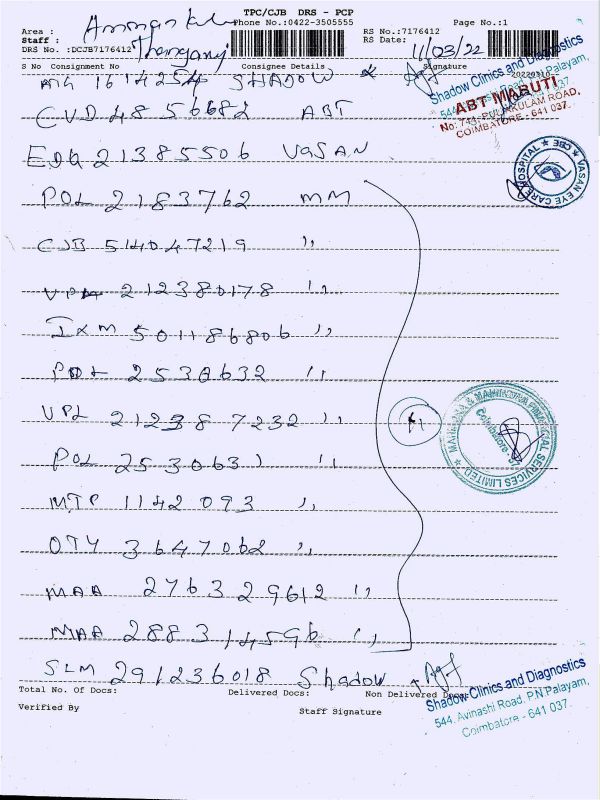 TPC/CJB DRS - PCP
Area : Amman kul Phone No.:0422-3505555 Page No.:1
Staff : RS No.:7176412
DRS No. :DCJB7176412 RS Date: 11/03/22
S No Consignment No Consignee Details Signature
20220310
1614254 SHADOW
Shadow Clinics and Diagnostics
ABT MARUTI
COIMBATORE - 641 037.
CVD 4856682 ABT
EDQ 21385506 VASAN
VASAN EYE CARE HOSPITAL ★ CBE ★
POL 2183762 MM
CJB 514047219 ,,
212380178 ,,
IXM 501186806 ,,
POL 2530632 ,,
VPL 212387232 ,,
11
MAHINDRA & MAHINDRA FINANCIAL SERVICES LIMITED ★
Coimbatore
POL 2530631 ,,
MTP 1142093 ,,
OTY 3647062 ,,
MAA 276329612 ,,
MAA 288314596 ,,
SLM 291236018 Shadow
Total No. Of Docs: Delivered Docs: Non Delivered Docs:
Shadow Clinics and Diagnostics
544, Avinashi Road, P.N.Palayam,
Coimbatore - 641 037.
Verified By Staff Signature